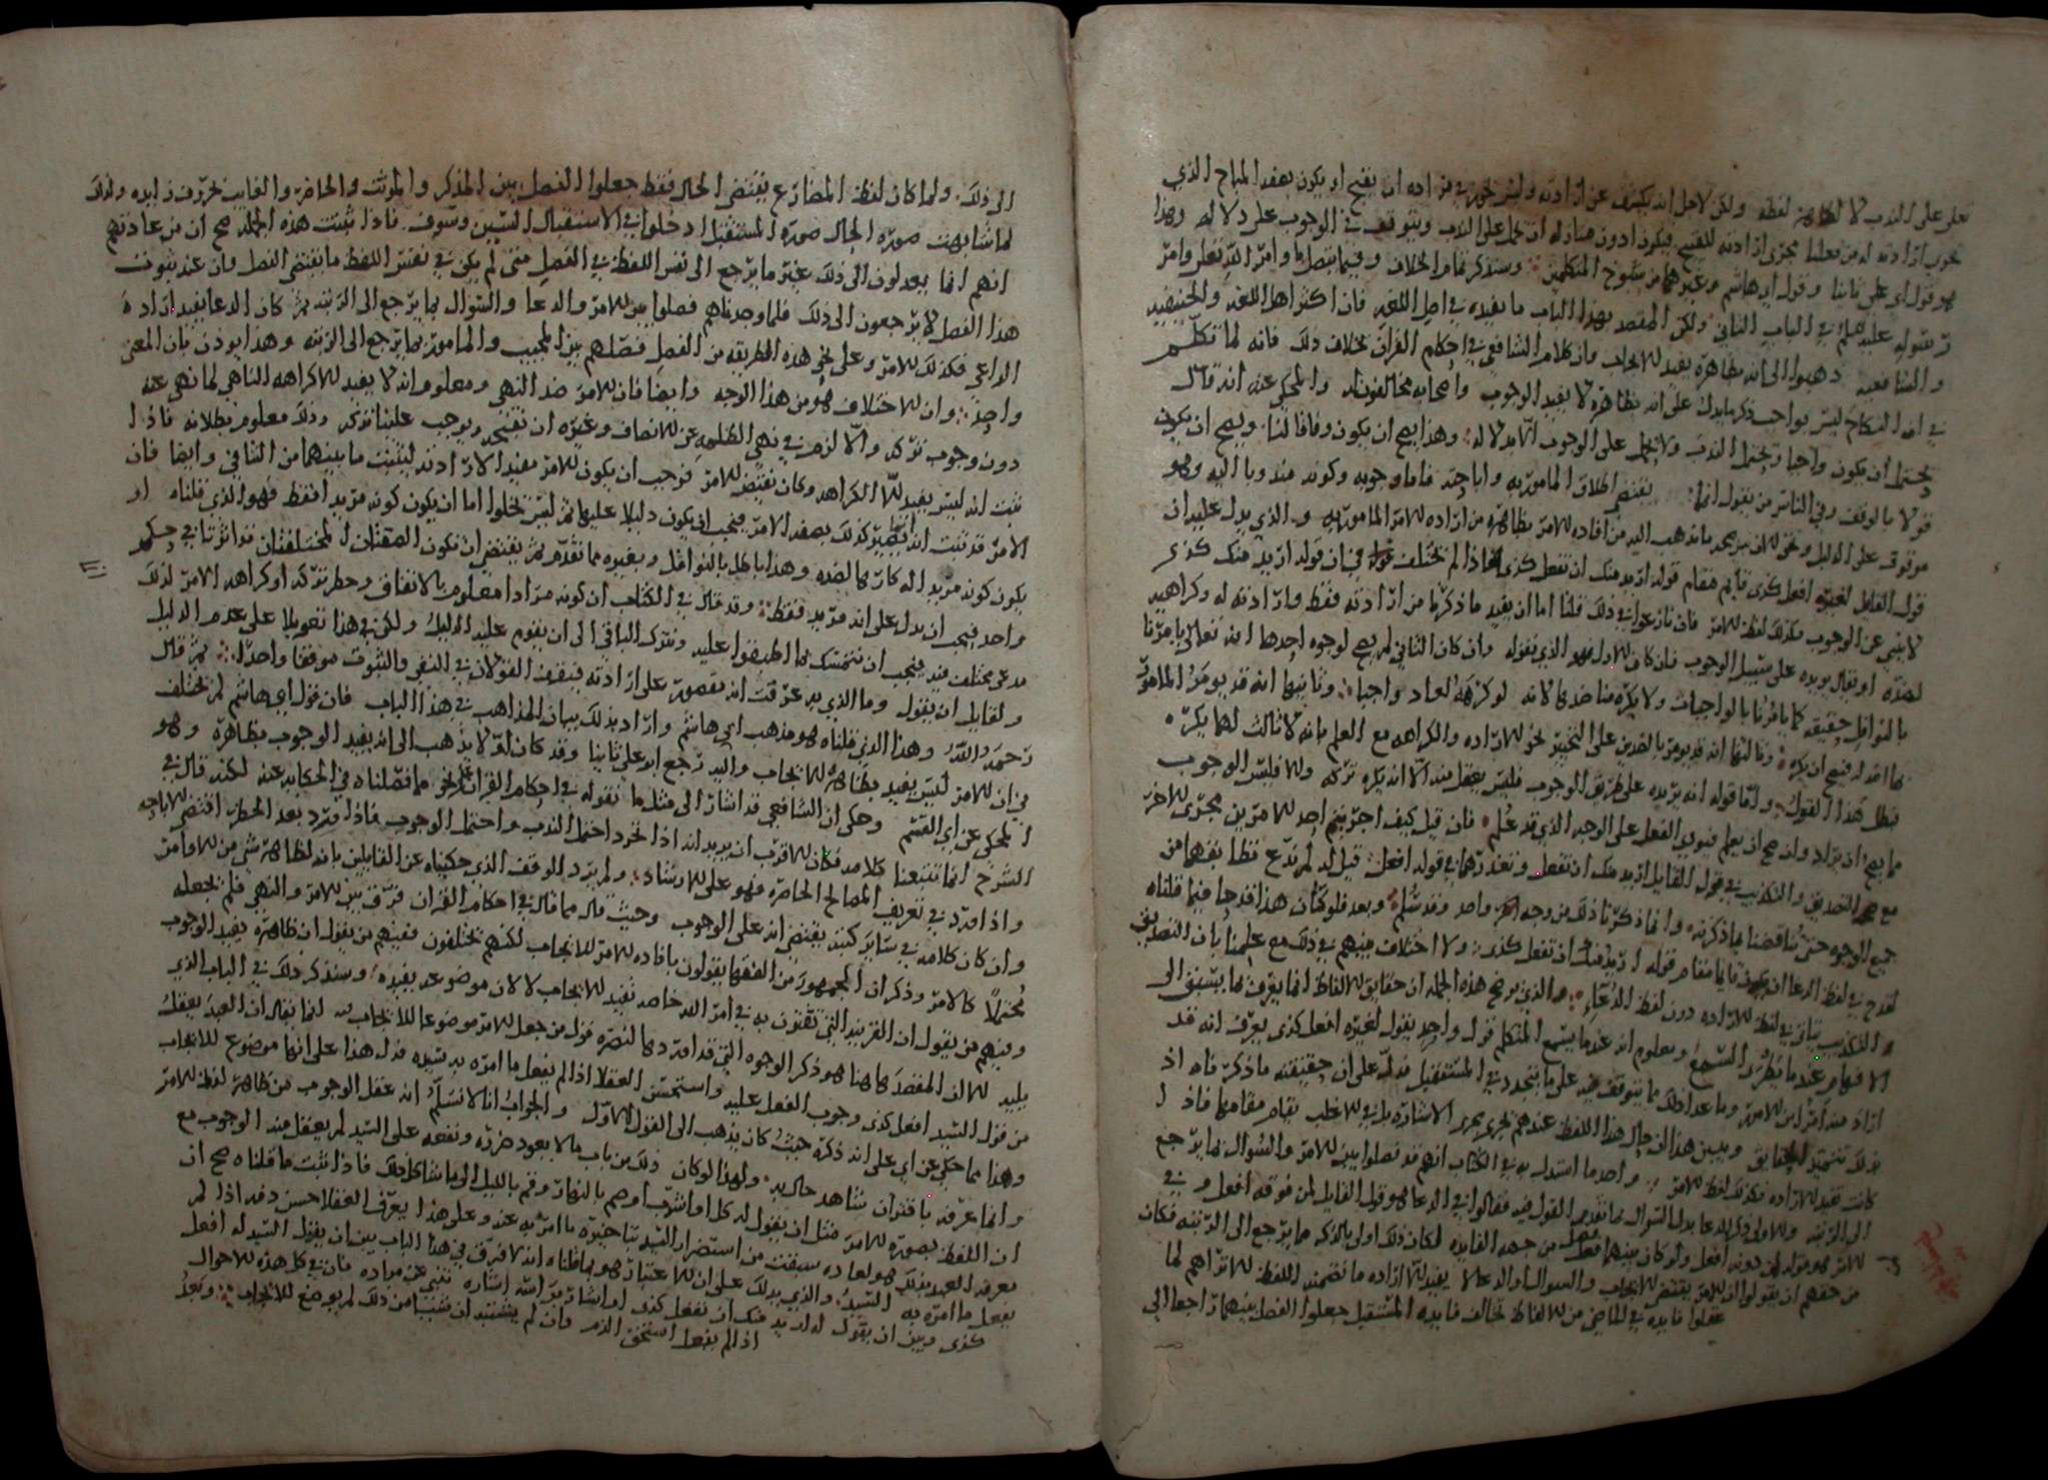 يحمل على الندب لا لظاهر لفظه ولكن لاجل انه يكشف عن ارادته وليس يجوز في مراده ان يقبح او يكون بصفه المباح الذي
ارادته له من فعلنا مجرى ارادته للقبيح فيكون ادون منازله ان يحمل على الندب ويتوقف في الوجوب على دلاله وهذا
هو قول ابي علي ثانيا وقول ابي هاشم وغيرهما من شيوخ المتكلمين وسنذكر تمام الخلاف وفيما يتصل بأوامر الله تعلى وامر
رسوله عليه السلم في الباب الثاني ولكن المقصد بهذا الباب ما يفيده في اصل اللغه فان اكثر اهل اللغه والحنفيه
والشافعيه ذهبوا الى انه بظاهره يفيد الايجاب وان كلام الشافعي في احكام القران بخلاف ذلك فانه لما تكلم
في ان النكاح ليس بواجب ذكر ما يدل على انه بظاهره لا يفيد الوجوب واصحابه مخالفون له والمحكي عنه انه قال
يحتمل ان يكون واجبا ويحتمل الندب ولا يحمل على الوجوب الا بدلاله وهذا يصح ان يكون وفاقا لنا ويصح ان يكون
قولا بالوقف وفي الناس من يقول انما يقتضي اطلاق المامور به واباحته فاما وجوبه وكونه مندوبا اليه فهو
موقوف على الدليل ونحن ما نذهب اليه من افاده الامر بظاهره من اراده الامر المامور به والذي يدل عليه ان
قول القايل لغيره افعل كذى قايم مقام قوله اريد منك ان تفعل كذى فاذا لم نختلف في ان قوله اريد منك كذى
لا ينبي عن الوجوب فكذلك لفظ الامر فان نازعوا في ذلك قلنا اما ان يفيد ما ذكرنا من ارادته فقط وارادته له وكراهيه
لضده او يقال يريده على سبيل الوجوب فان كان الاول فهو الذي نقوله وان كان الثاني لم يصح لوجوه احدها انه تعالى يامرنا
بالنوافل حقيقه كما يامرنا بالواجبات ولا يكره منا ضدها لانه لو كرهه لعاد واجبا وثانيها انه قد يومر المامور
بما له فيقبح ان يكره وثالثها انه قد يومر بالضدين على التخيير نحو الاراده والكراهه مع العلم بانه لا ثالث لهما يكره
فبطل هذا القول واما قوله انه يريده على طريق الوجوب فليس يعقل منه الا انه يكره تركه والا فليس الوجوب
مما يصح ان يراد وانما يصح ان يعلم فينوي الفعل على الوجه الذي قد علم فان قيل كيف اجريتم احد الامرين مجرى الاخر
مع التصديق والتكذيب في قول القايل اريد منك ان تفعل وتعذرهما في قوله افعل قيل له لم ندع تطابقهما من
جميع الوجوه حتى تناقضنا بما ذكرته وانما ذكرنا ذلك من وجه واحد وقد سُلم وبعد فلو كان هذا قدحا فيما قلناه
لقدح في لفظ الدعا ان يكون قايما مقام قوله اريد منك ان تفعل كذى ولا اختلاف بينهم في ذلك مع علمنا بان التصديق
والتكذيب يتاتى في لفظ الاراده دون لفظ الدعاء والذي يوضح هذه الجمله ان حقايق الالفاظ انما يعرف بما يسبق الى
الافهام عند ما يطرق السمع ومعلوم انه عند ما يسمع المتكلم قول واحد يقول لغيره افعل كذى يعرف انه قد
اراد منه امرا من الامور وما عدا ذلك مما يتوقف فيه على ما يتجدد في المستقبل فدل على ان حقيقته ما ذكرناه اذ
بذلك تتميز الحقايق ويبين هذا ان حال هذا اللفظ عندهم يجري مجرى الاشاره بل في الاغلب يقام مقامها فاذا
كانت تفيد الاراده فكذلك لفظ الامر واحد ما استدل به في الكتاب انهم قد فصلوا بين الامر والسوال بما يرجع
الى الرتبه والاولى ذكر الدعا بدل السوال لما تقدم القول فيه فقالوا في الدعا هو قول القايل لمن فوقه افعل وفي
الامر هو قوله لمن دونه افعل ولو كان بينهما فصل من جهه الفايده لكان ذلك اولى بالذكر مما يرجع الى الرتبه فكان
من حقهم ان يقولوا ان الامر يقتضي الايجاب والسوال والدعا لا يفيد الا اراده ما تضمنه اللفظ الا تراهم لما
عقلوا فايده في الماضي من الالفاظ خالف فايده المستقبل جعلوا الفصل بينهما راجعا الى
الى ذلك ولما كان لفظ المضارع يقتضي الحال فقط جعلوا الفصل بين المذكر والمونث والحاضر والغايب بحروف زايده ولذلك
لما شابهت صوره الحال صوره المستقبل ادخلوا في الاستقبال السين وسوف فاذا ثبتت هذه الجمله صح ان من عادتهم
انهم انما يعدلون الى ذلك عند ما يرجع الى نفس اللفظ في الفصل متى لم يكن في نفس اللفظ ما يقتضي الفصل وان عند ثبوت
هذا الفصل لا يرجعون الى ذلك فلما وجدناهم فصلوا بين الامر والدعا والسوال بما يرجع الى الرتبه ثم كان الدعا يفيد اراده
الداعي فكذلك الامر وعلى نحو هذه الطريقه من الفصل فصلهم بين المجيب والمامور بما يرجع الى الرتبه وهذا يوذن بان المعنى
واحد وان الاختلاف هو من هذا الوجه وايضا فان الامر ضد النهي ومعلوم انه لا يفيد الا كراهه الناهي لما نهى عنه
دون وجوب تركه والا لزم في نهي الظلمه عن الانصاف وغيره ان تقتضي ويوجب علينا تركه وذلك معلوم بطلانه فاذا
ثبت انه ليس يفيد الا الكراهه وكان نقيض الامر فوجب ان يكون الامر مفيدا لارادته ليثبت ما بينهما من التنافي وايضا فان
الامر قد ثبت انه يصير كذلك بصفه الامر فيجب ان يكون دليلا عليها ثم ليس يخلوا اما ان يكون كونه مريدا فقط فهو الذي قلناه او
يكون كونه مريدا له كارها لضده وهذا باطل بالنوافل وبغيره مما تقدم ثم يقتضي ان تكون الصفتان المختلفتان موثرتان في حكم
واحد فيجب ان يدل على انه مريد فقط وقد قال في الكتاب ان كونه مرادا معلوم بالاتفاق وحظر تركه او كراهه الامر لذلك
مدعى مختلف فيه فيجب ان نتمسك بما اطبقوا عليه ونترك الباقي الى ان يقوم عليه الدليل ولكن في هذا تعويلا على عدم الدليل
ولقايل ان يقول وما الذي به عرفت انه مقصور على ارادته فيقف القولان في النفي والثبوت موقفا واحدا ثم قال
رحمه الله وهذا الذي قلناه هو مذهب ابي هاشم واراد بذلك بيان المذاهب في هذا الباب فان قول ابي هاشم لم يختلف
في ان الامر ليس يفيد بظاهره الايجاب واليه رجع ابو علي ثانيا وقد كان اولا يذهب الى انه يفيد الوجوب بظاهره وهو
المحكي عن ابي القسم وحكى ان الشافعي قد اشار الى مثل ما نقوله في احكام القران على نحو ما فصلناه في الحكايه عنه لكنه قال في
الشرح انما تتبعنا كلامه فكان الاقرب ان يريد انه اذا تجرد احتمل الندب واحتمل الوجوب فاذا ورد بعد الحظر اقتضى الاباحه
واذا ورد في تعريف المصالح الحاضره فهو على الارشاد ولم يرد الوقف الذي حكيناه عن القايلين بانه لظاهر شي من الاوامر
وان كان كلامه في ساير كتبه يقتضي انه على الوجوب وحيث قال مما قال في احكام القران فرق بين الامر والنهي فلم نجعله
محتملا كالامر وذكر ان الجمهور من الفقها يقولون بافاده الامر للايجاب لكنهم مختلفون فمنهم من يقول ان ظاهره يفيد الوجوب
ومنهم من يقول ان القرينه التي تقترن به في امر الله خاصه تفيد الايجاب لا لان موضوعه يفيده وسنذكر ذلك في الباب الذي
يليه الا ان المقصد هاهنا هو ذكر الوجوه التي قد اوردها لنصره قول من جعل الامر موضوعا للايجاب انما يقال ان العبد يعقل
من قول السيد افعل كذى وجوب الفعل عليه واستحسن العقلا اذا لم يفعل ما امره به سيده فدل هذا على انها موضوع للايجاب
وهذا مما حكي عن ابي علي انه ذكره حيث كان يذهب الى القول الاول والجواب انا لا نسلم انه عقل الوجوب من ظاهر لفظ الامر
وانما عرفه باقتران شاهد حال به ولهذا لو كان ذلك من باب ما لا يعود ضرره ونفعه على السيد لم يعقل منه الوجوب مع
ان اللفظ بصوره الامر مثل ان يقول له كل او اشرب او صم بالنهار وقم بالليل الى ما شاكل ذلك فاذا ثبت ما قلناه صح ان
معرفه العبد بذلك هو لعاده سبقت من استضرار السيد بتاخيره ما امر به عنه وعلى هذا يعرف العقلا حسن ذمه اذا لم
يفعل ما امره به السيد والذي يدلك على ان الاعتبار هو بما قلناه انه لا فرق في هذا الباب بين ان يقول السيد له افعل
كذى وبين ان يقول له اريد منك ان تفعل كذى او اشار اليه اشاره تنبي عن مراده فان في كل هذه الاحوال
اذا لم يفعل استحق الذم وان لم يشتبه ان شيبا من ذلك لم يوضع للايجاب وبعد